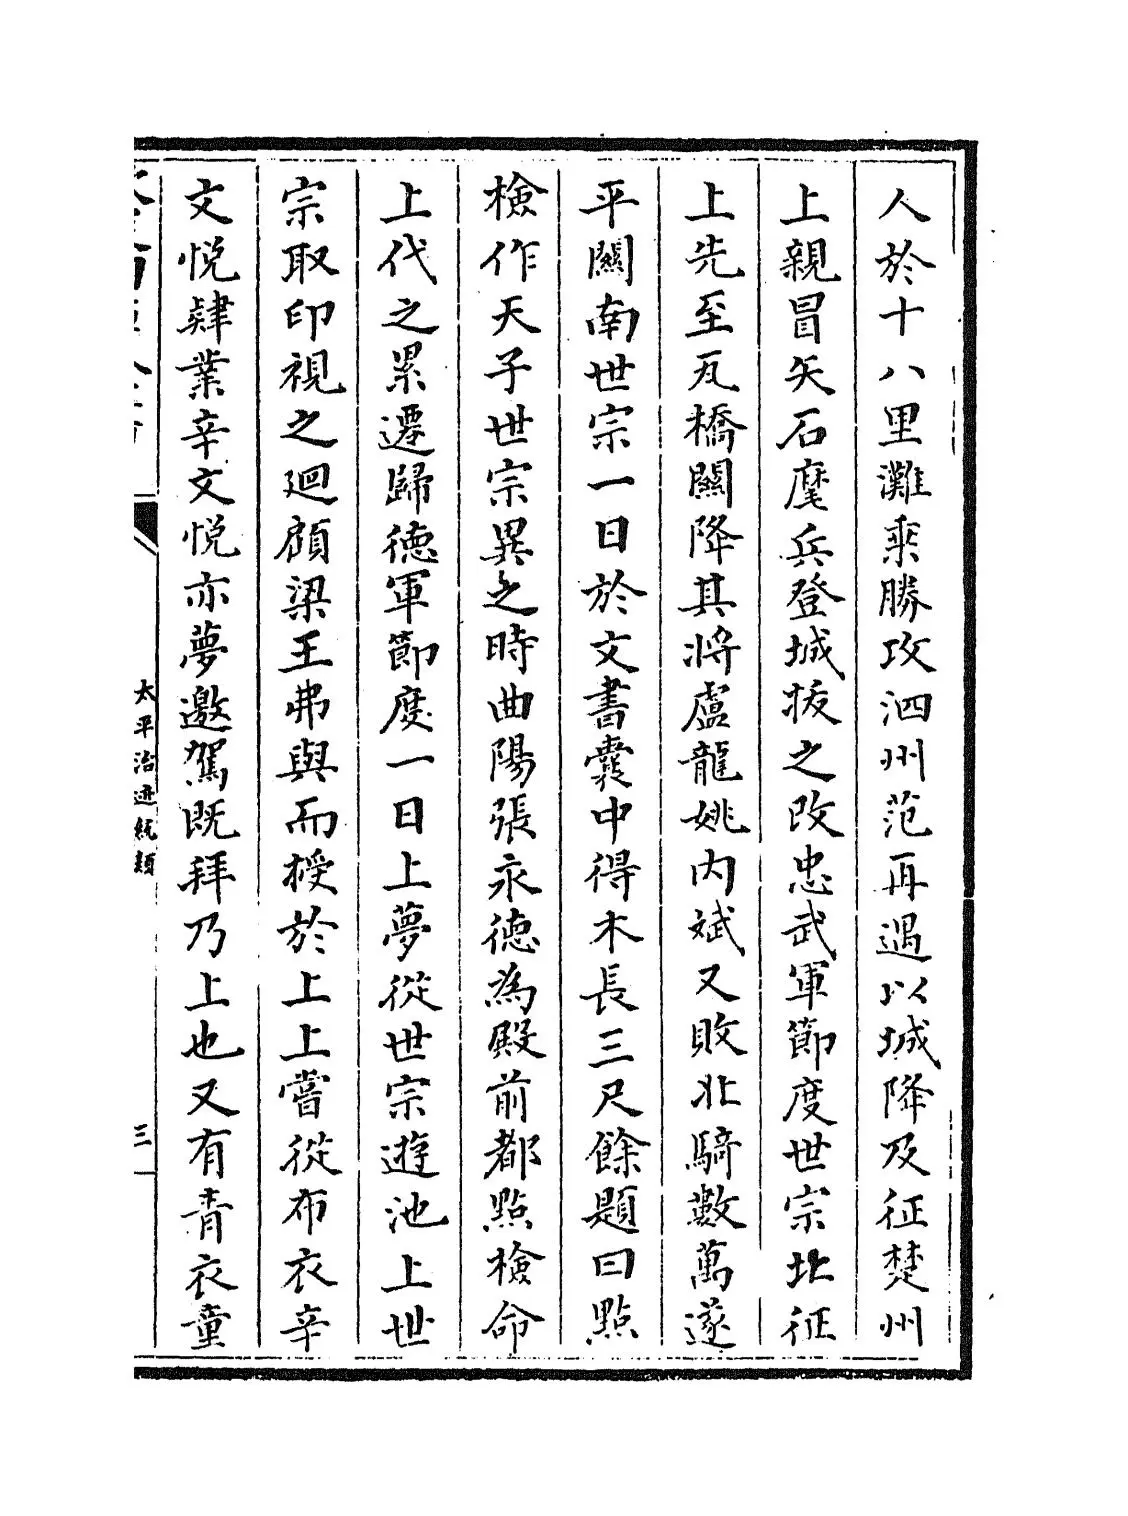 人於十八里灘乘勝攻泗州范再遇以城降及征楚州
上親冒矢石麾兵登城拔之改忠武軍節度世宗北征
上先至瓦橋關降其將盧龍姚内斌又敗北騎數萬遂
平關南世宗一日於文書囊中得木長三尺餘題曰點
檢作天子世宗異之時曲陽張永德為殿前都點檢命
上代之累遷歸徳軍節度一日上夢從世宗遊池上世
宗取印視之廻顧梁王弗與而授於上上嘗從布衣辛
文悅肄業辛文悅亦夢邀駕既拜乃上也又有青衣童
太平治迹統類
三